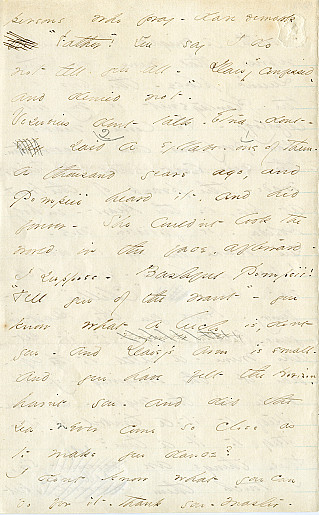 persons who pray - dare remark
"Father"! You say I do
not tell you all - Daisy confessed -
and denied not.
Vesuvius dont talk - Etna - dont -
2 1
said a syllable - one of them -
a thousand years ago, and
Pompeii heard it, and hid
forever - She could'nt look the
world in the face, afterward -
I suppose - Bashfull Pompeii!
"Tell you of the want" - you
know what a leech is, dont
you - and Daisy's arm is small -
and you have felt the Horizon
hav'nt you - and did the
sea - never come so close as
to make you dance?
I dont know what you can
do for it - thank you - Master -